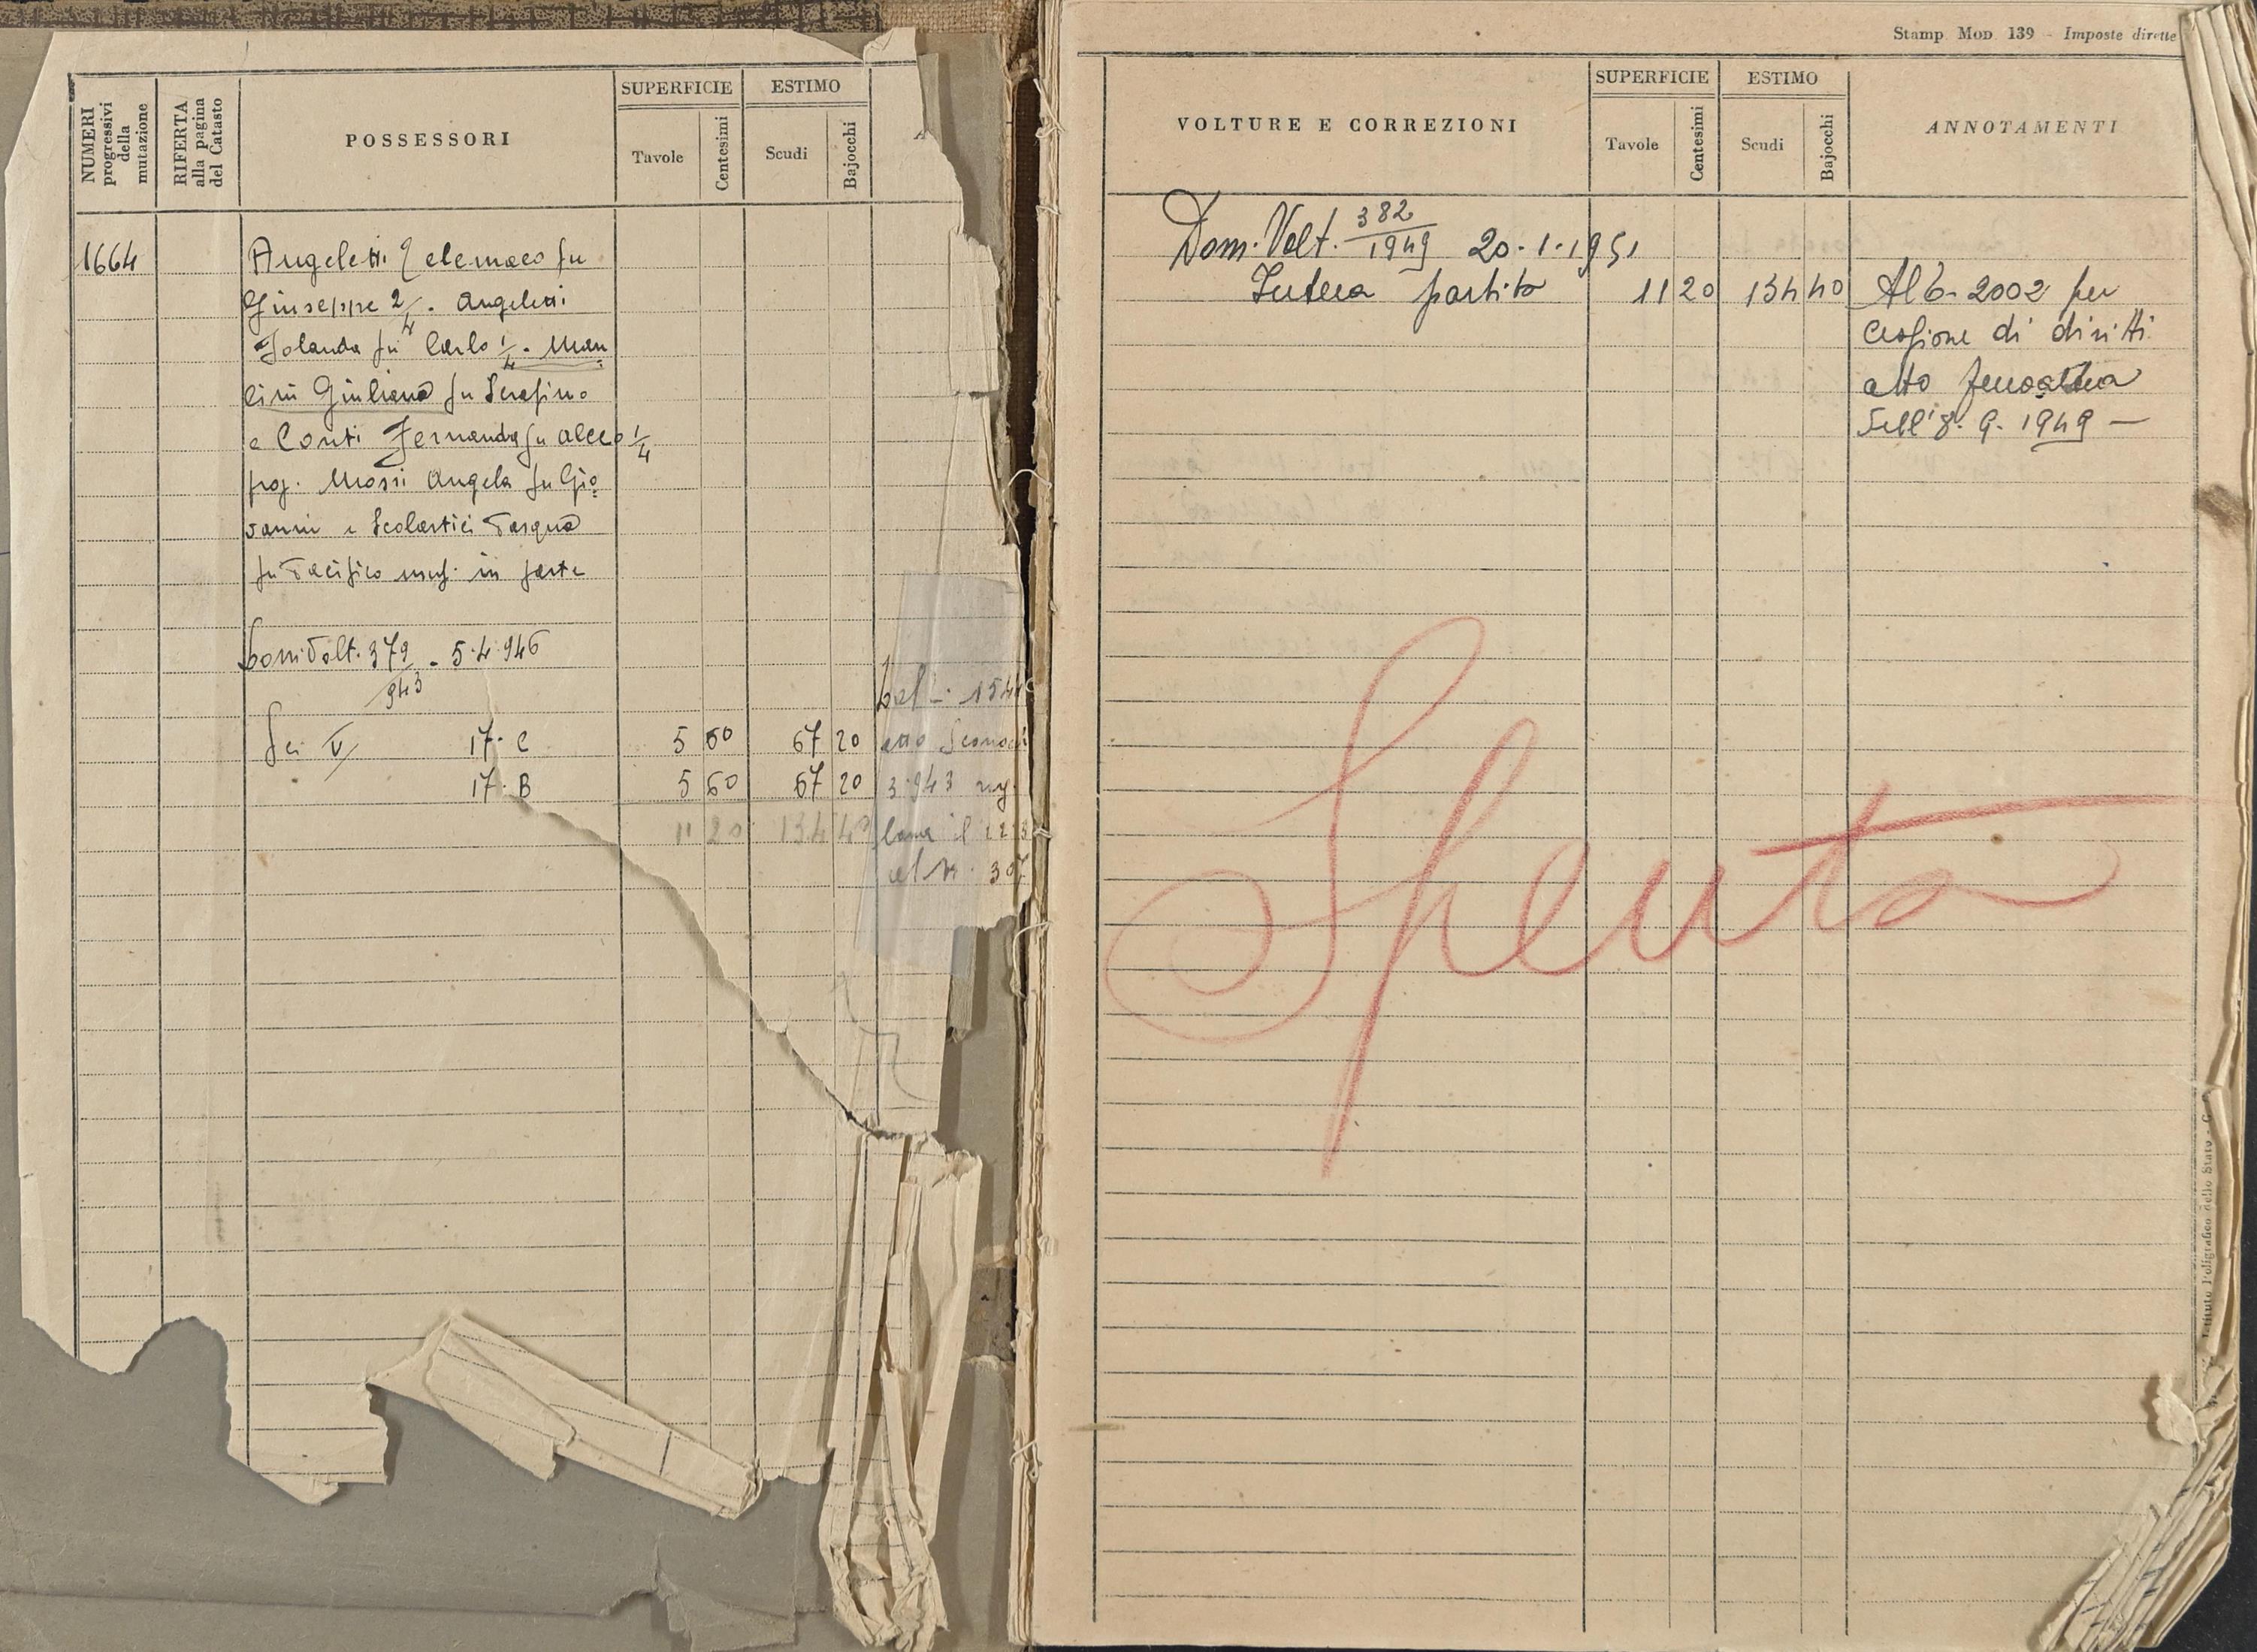 NUMERI
progressivi
della
mutazione
RIFERTA
alla pagina
del Catasto
POSSESSORI
SUPERFICIE
Tavole
Centesimi
ESTIMO
Scudi
Bajocchi
1664
Angeletti Telemaco fu
Giuseppe 2/4. Angeletti
Jolanda fu Carlo 1/4. Man
cini Giuliana fu Serafino
e Conti Fernanda fu Alceo 1/4
prop. Mossi Angela fu Gio
vanni e Scolastici Pasqua
fu Pacifico usuf. in parte
Dom. Volt. 379/943 . 5.4.946
Sez V 17. C 5 60 67 20
17. B 5 60 67 20
11 20 134 40
dal 154
atto
3.943 reg.
il
al N. 307
Stamp. Mod 139 - Imposte dirette
VOLTURE E CORREZIONI
SUPERFICIE
Tavole
Centesimi
ESTIMO
Scudi
Bajocchi
ANNOTAMENTI
Dom. Volt. 382/1949 20.1.1951
Intera partita 11 20 134 40
Al 6. 2002 per
cessione di diritti
atto
dell'8. 9. 1949 —
Spenta
Istituto Poligrafico dello Stato - G